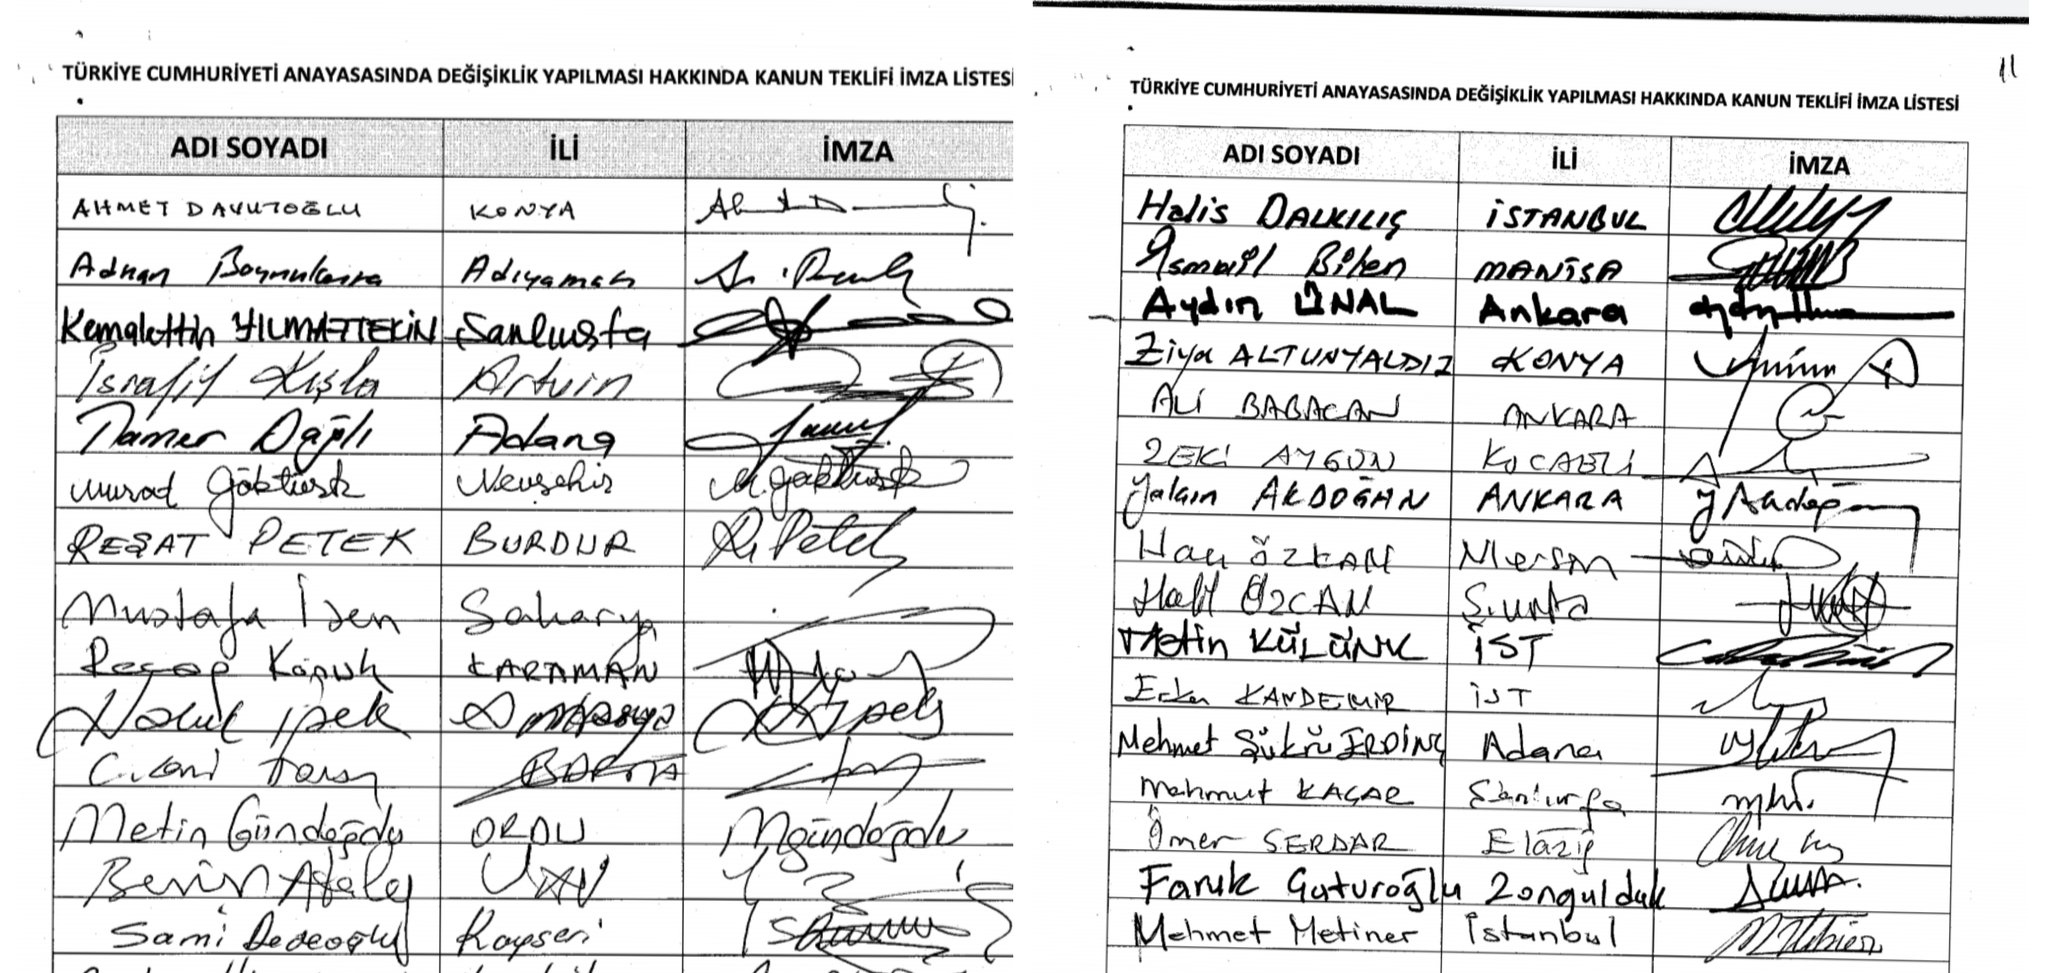 TÜRKİYE CUMHURİYETİ ANAYASASINDA DEĞİŞİKLİK YAPILMASI HAKKINDA KANUN TEKLİFİ İMZA LİSTESİ
ADI SOYADI İLİ İMZA
AHMET DAVUTOĞLU KONYA
Adnan Boynukara Adıyaman
Kemalettin YILMAZTEKİN Şanlıurfa
İsrafil Kışla Artvin
Tamer Dağlı Adana
Murad Göktürk Nevşehir M. Göktürk
REŞAT PETEK BURDUR R. Petek
Mustafa İsen Sakarya
Recep Konuk KARAMAN
Haluk ipek Amasya H. ipek
BARTIN
Metin Gündoğdu ORDU MGündoğdu
Sami Dedeoğlu Kayseri
11
TÜRKİYE CUMHURİYETİ ANAYASASINDA DEĞİŞİKLİK YAPILMASI HAKKINDA KANUN TEKLİFİ İMZA LİSTESİ
ADI SOYADI İLİ İMZA
Halis DALKILIÇ İSTANBUL
İsmail Bilen MANİSA
Aydın ÜNAL Ankara
Ziya ALTUNYALDIZ KONYA
ALİ BABACAN ANKARA
ZEKİ AYGÜN KOCAELİ
Yalçın AKDOĞAN ANKARA Y Akdoğan
Hacı ÖZKAN Mersin
Halil ÖZCAN Ş.urfa
Metin KÜLÜNK İST
KANDEMİR İST
Mehmet ŞÜKRÜ ERDİNÇ Adana
Mahmut KAÇAR Şanlıurfa
Ömer SERDAR Elazığ
Faruk Çaturoğlu Zonguldak
Mehmet Metiner İstanbul